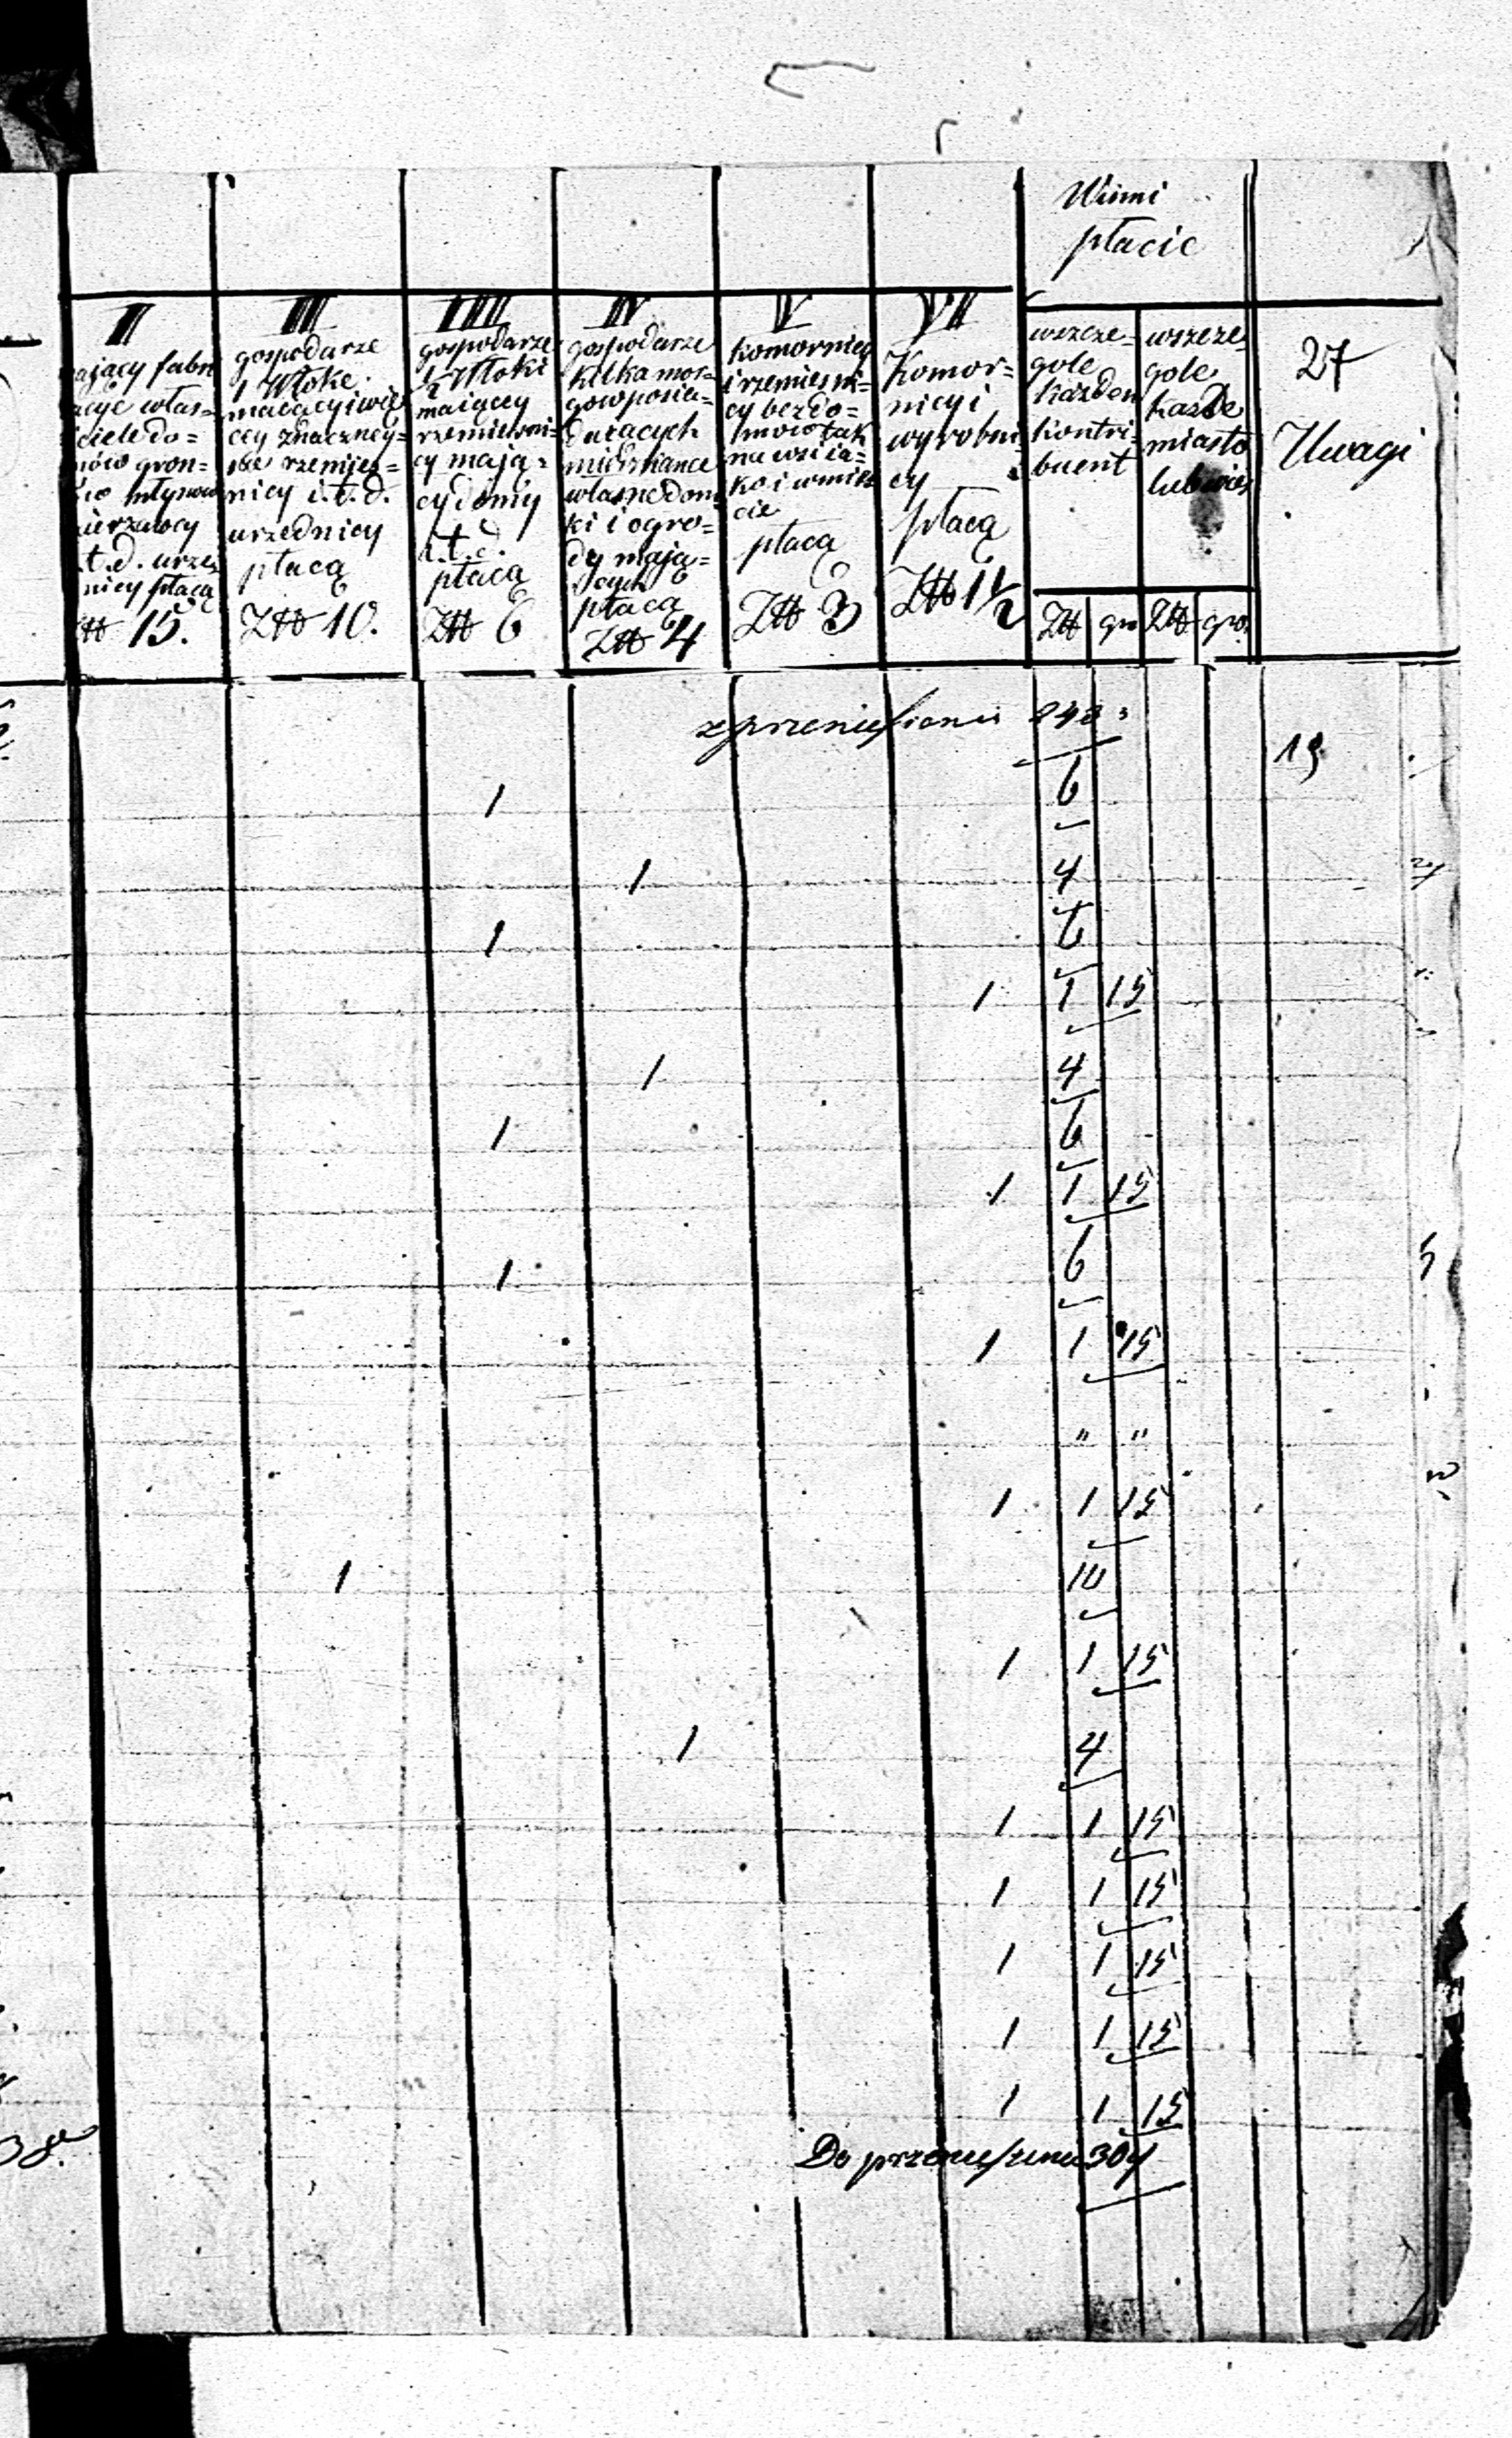 Winni
płacić
II
ający fabri
acye włas=
iciele do=
mów gron=
tów młynow
ierzawcy
.t.d. urzę
nicy płacą
Z℔ 15.
III
gospodarze
1 Włokę
maiący i wię
cey znaczney=
sze rzemięs=
nicy i.t.d.
urzędnicy
płacą
Z℔ 10.
IIII
gospodarze
½ Włoki
maiący
rzemieśni=
cy mają=
cy domy
i.t.d.
płacą
Z℔ 6
IV
gospodarze
kilka mor=
gow posia=
daiących
mieszkańce
własne dom
ki i ogro=
dy mają=
cych
płacą
Z℔ 4
V
komornicy
i rzemieśni=
cy bezdo=
mowi tak
na wsi ia=
ko i w mieś
cie
płacą
Z℔ 3
VII
Komor=
nicy i
wyrobni
cy
płacą
Z℔ 1½
wszcze=
gole
każden
kontri=
buent
wszcze=
gole
każde
miasto
lub wieś
27
Uwagi
Z℔ gr Z℔ gro.
z przeniesienia 243
19
1 6
1 4
1 6
1 1 15
1 4
1 6
1 1 15
1 6
1 1 15
" "
1 1 15
1 10
1 1 15
1 4
1 1 15
1 1 15
1 1 15
1 1 15
1 1 15
Do przeniesienia 304